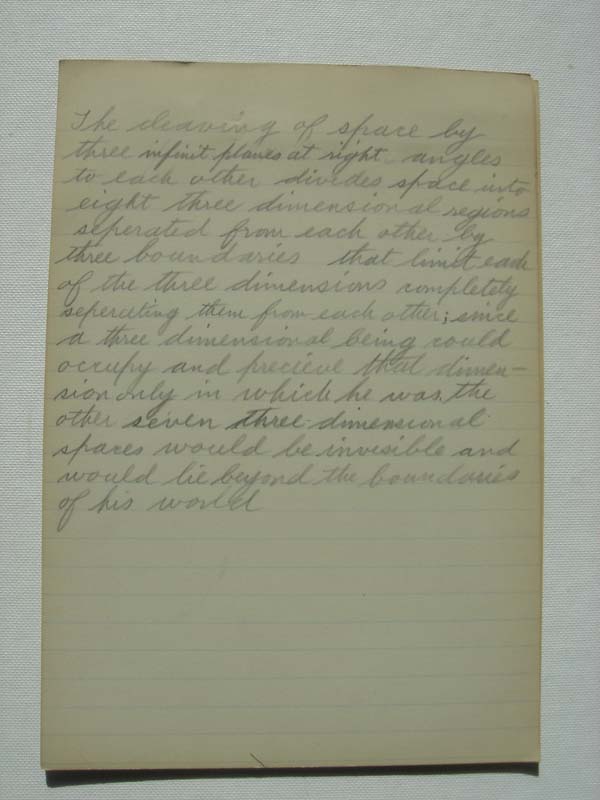 The cleaving of space by
three infinit planes at right angles
to each other divides space into
eight three dimensional regions
seperated from each other by
three boundaries that limit each
of the three dimensions completely
seperating them from each other; since
a three dimensional being could
occupy and precieve that dimen-
sion only in which he was, the
other seven three-dimensional
spaces would be invisible and
would lie beyond the boundaries
of his world